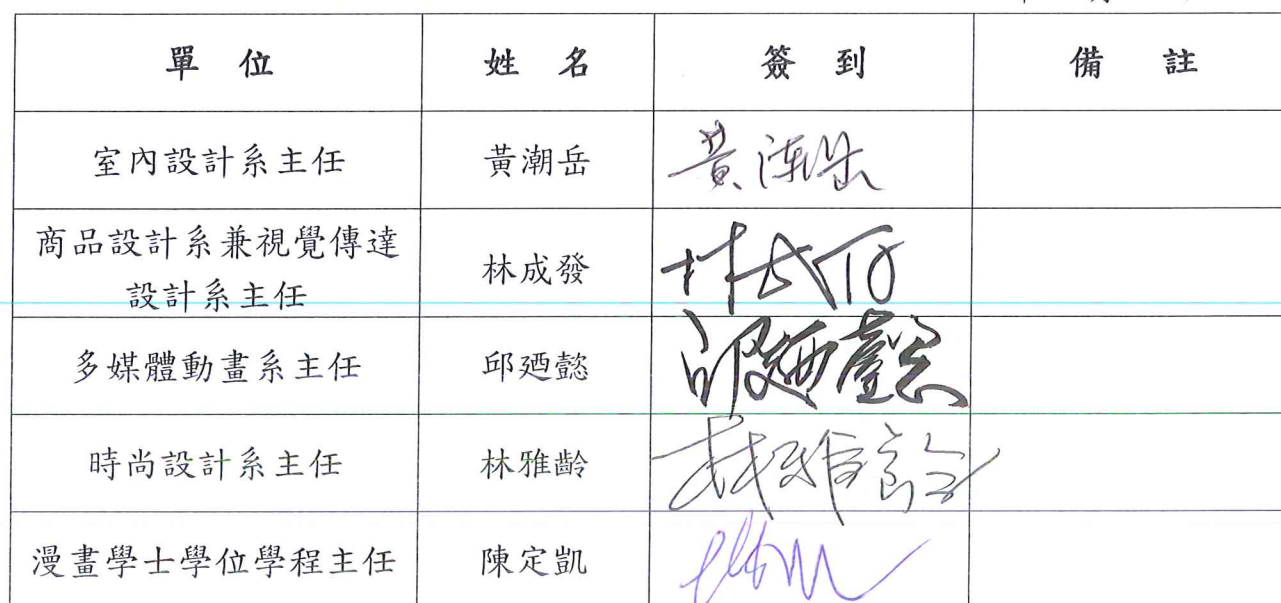 單 位 姓 名 簽 到 備 註
室內設計系主任 黃潮岳 黃潮岳
商品設計系兼視覺傳達
設計系主任 林成發 林成发
多媒體動畫系主任 邱廼懿 邱廼懿
時尚設計系主任 林雅齡 林雅齡
漫畫學士學位學程主任 陳定凱